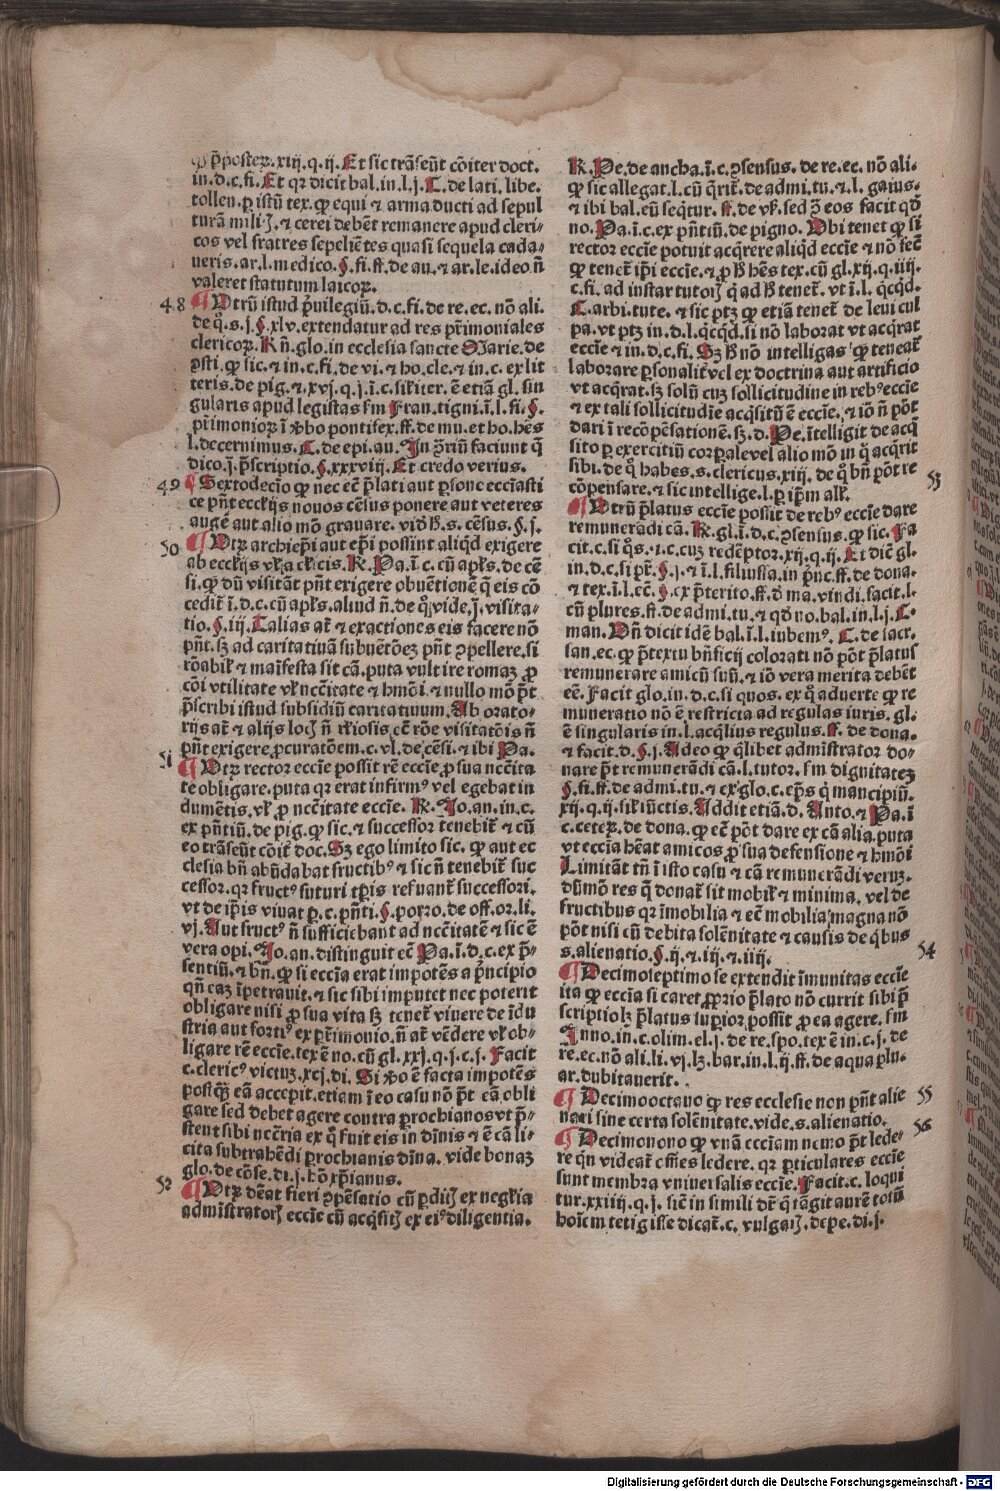 q̄ p̄poster̄. xiij. q. ij. Et sic trāseūt cōiter doct.
in. d. c. fi. Et qꝛ dicit bal. in. l. j. C. de lati. libe.
tollen. ꝑ istū tex. ꝙ equi ⁊ arma ducti ad sepul
turā militꝭ. ⁊ cerei debēt remanere apud cleri-
cos vel fratres sepeliētes quasi sequela cada-
ueris. ar. l. medico. §. fi. ff. de au. ⁊ ar. le. ideo ñ
valeret statutum laicoꝝ.
48 ¶ Vtrū istud p̄uilegiū. d. c. fi. de re. ec. nō ali.
de q̊. s. j. §. xlv. extendatur ad res pr̄imoniales
clericoꝝ. R̄ ñ. glo. in ecclesia sancte Marie. de
ꝯsti. ꝙ sic. ⁊ in. c. fi. de vi. ⁊ ho. cle. ⁊ in. c. ex lit
teris. de pig. ⁊. xvj. q. j. i. c. sił̄iter. ē etiā gl. sin
gularis apud legistas s̄m Fran. tigni. ī. l. fi. §.
pr̄imonioꝝ ī ꝟbo pontifex. ff. de mu. et ho. hēs
l. decernimus. C. de epi. au. In ꝯ̄riū faciunt q̄
dico. j. p̄scriptio. §. xxxvij. Et credo verius.
49 ¶ Sextodecīo ꝙ nec eē p̄lati aut ꝑsone ecclīasti
ce pn̄t ecclīijs nouos cēsus ponere aut veteres
augē aut alio mō grauare. vid ħ. s. cēsus. §. j.
50 ¶ Vtꝝ archiep̄i aut ep̄i possint aliqd̄ exigere
ab ecclīijs vł a cłicis. R̄. Pa. ī. c. cū apłs. de cē
si. ꝙ dū visitāt pn̄t exigere obuētionē q̄ eis cō
cedit̄ ī. d. c. cū apłs. aliud ñ. de q̊ vide. j. visita-
tio. §. iij. Talias at̄ ⁊ exactiones eis facere nō
pn̄t. sꝫ ad caritatiuā subuētōeꝫ pn̄t ꝯpellere. si
rōabił ⁊ maīfesta sit cā. puta vult ire romaꝫ ꝓ
cōi vtilitate vł nc̄citate ⁊ hmōi. ⁊ nullo mō p̄t
p̄scribi istud subsidiū caritatiuum. Ab orato-
rijs at̄ ⁊ alijs locꝭ ñ rł̄iosis eē rōe visitatōis ñ
pn̄t exigere ꝓcuratōem. c. vl. de cēsi. ⁊ ibi Pa.
51 ¶ Vtꝝ rector ecclie possit rē ecclie ꝓ sua nc̄cita
te obligare. puta qꝛ erat infirmꝰ vel egebat in
dumētis. vł ꝓ nc̄citate ecclie. R̄. Jo. an. in. c.
ex pn̄tiū. de pig. ꝙ sic. ⁊ successor tenebit̄ ⁊ cū
eo trāseūt cōit̄ doc. Sꝫ ego limito sic. ꝙ aut ec
clesia bñ abūdabat fructibꝰ ⁊ sic ñ tenebit̄ suc
cessor. qꝛ fructꝰ futuri tp̄is refuant̄ successori.
vt de ip̄is viuat ꝑ. c. pn̄ti. §. porro. de off. or. li.
vj. Aut fructꝰ ñ sufficiebant ad nc̄citatē ⁊ sic ē
vera opi. Jo. an. distinguit eē Pa. ī. d. c. ex p̄-
sentiū. ⁊ bñ. ꝙ si eccīa erat impotēs a p̄ncipio
qñ eaꝫ īpetrauit. ⁊ sic sibi imputet nec poterit
obligare nisi ꝓ sua vita sꝫ tenet̄ viuere de īdu
stria aut fortꝰ ex pr̄imonio. ñ at̄ vēdere vł ob-
ligare rē ecclie. tex ē no. cū gl. xxj. q. j. c. j. Facit
c. clericꝰ victuꝫ. xcj. di. Si ꝟo ē facta impotēs
postꝗ̄ eā accepit. etiam ī eo casu nō p̄t eā obli
gare sed debet agere contra ꝓchianos vt p̄-
stent sibi nc̄cria ex q̊ fuit eis in dīnis ⁊ ē cā li-
cita subtrahēdi ꝓchianis dīna. vide bonaꝫ
glo. de cōse. di. j. ħō xp̄ianus.
52 ¶ Vtꝝ dēat fieri ꝯpēsatio cū ꝑditꝭ ex neglīa
admīstratorꝭ ecclie cū acq̄sitꝭ ex eiꝰ diligentia.
R̄. Pe. de ancha. ī. c. ꝯsensus. de re. ec. nō ali-
ꝙ sic allegat. l. cū q̄rit̄. de admi. tu. ⁊. l. gaius.
⁊ ibi bal. eū seqt̄ur. ff. de vł. sed ꝯ̄ eos facit qd̄
no. Pa. ī. c. ex pn̄tiū. de pigno. Vbi tenet ꝙ si
rector ecclie potuit acq̄rere aliqd̄ ecclie ⁊ nō fec̄
ꝙ tenet̄ ip̄i ecclie. ⁊ ꝓ ħ hēs tex. cū gl. xij. q. iiij.
c. fi. ad instar tutorꝭ q̄ ad ħ tenet̄. vt ī. l. qc̄qd̄.
C. arbi. tute. ⁊ sic ptꝫ ꝙ etiā tenet̄ de leui cul
pa. vt ptꝫ in. d. l. qc̄qd̄. si nō laborat vt acqrat
ecclie ⁊ in. d. c. fi. Sꝫ ħ nō intelligas ꝙ teneat̄
laborare ꝑsonalit̄ vel ex doctrina aut artificio
vt acq̄rat. sꝫ solū cuꝫ sollicitudine in rebꝰ ecclie
⁊ ex tali sollicitudīe acq̄sitū ē ecclie. ⁊ iō ñ pōt
dari ī recōpēsationē. sꝫ. d. Pe. ītelligit de acq̄
sito ꝑ exercitiū corꝑale vel alio mō in q̊ acq̄rit
sibi. de q̊ habes. s. clericus. xiij. de q̊ bñ pōt re
cōpensare. ⁊ sic intellige. l. ꝑ ip̄m alł.
53 ¶ Vtrū p̄latus ecclie possit de rebꝰ ecclie dare
remunerādi cā. R̄. gl. ī. d. c. ꝯsensus. ꝙ sic. Fa
cit. c. si q̊s. ⁊. c. cuꝫ redēptor. xij. q. ij. Et diē gl.
in. d. c. si pr̄. §. j. ⁊ ī. l. filiussa. in p̄nc. ff. de dona.
⁊ tex. ī. l. eē. §. ex p̄terito. ff. ð ma. vindi. facit. l.
cū plures. ff. de admi. tu. ⁊ qd̄ no. bal. in. l. j. C.
man. Vn̄ dicit idē bal. ī. l. iubemꝰ. C. de sacr.
san. ec. ꝙ p̄textu bn̄ficij colorati nō pōt p̄latus
remunerare amicū suū. ⁊ iō vera merita debēt
eē. Facit glo. in. d. c. si quos. ex q̊ aduerte ꝙ re
muneratio nō ē restricta ad regulas iuris. gl.
ē singularis in. l. acq̄lius regulus. ff. de dona.
⁊ facit. d. §. j. Adeo ꝙ q̄libet admīstrator do-
nare p̄t remunerādi cā. l. tutor. s̄m dignitateꝫ
§. fi. ff. de admi. tu. ⁊ ex glo. c. ep̄s q̄ mancipiū.
xij. q. ij. sił iūctis. Addit etiā. d. Anto. ⁊ Pa. ī
c. ceteꝝ. de dona. ꝙ eē pōt dare ex cā alia. puta
vt eccīa hēat amicos ꝓ sua defensione ⁊ hmōi
Limitāt tñ ī isto casu ⁊ cā remunerādi veruꝫ.
dūmō res q̄ donat̄ sit mobił ⁊ minima. vel de
fructibus qꝛ īmobilia ⁊ eē mobilia magna nō
pōt nisi cū debita solēnitate ⁊ causis de q̄bus
s. alienatio. §. ij. ⁊. iij. ⁊. iiij.
54 ¶ Decimoseptimo se extendit īmunitas ecclie
ita ꝙ eccīa si caret ꝓprio p̄lato nō currit sibi p̄
scriptio lꝫ p̄latus suꝑior possit ꝓ ea agere. s̄m
Inno. in. c. olim. el. j. de re. spo. tex ē in. c. j. de
re. ec. nō ali. li. vj. lꝫ. bar. in. l. ij. ff. de aqua plu.
ar. dubitauerit.
55 ¶ Decimooctauo ꝙ res ecclesie non pn̄t alie
nari sine certa solēnitate. vide. s. alienatio.
56 ¶ Decimonono ꝙ vnā eccīam nemo p̄t lede-
re qn̄ videat̄ oēs ledere. qꝛ ꝑticulares ecclie
sunt membra vniuersalis ecclie. Facit. c. loqui
tur. xxiiij. q. j. sic̄ in simili dr̄ q̄ tāgit aurē totū
hoīem tetigisse dicat̄. c. vulgarꝭ. de pe. di. j.
Digitalisierung gefördert durch die Deutsche Forschungsgemeinschaft - DFG